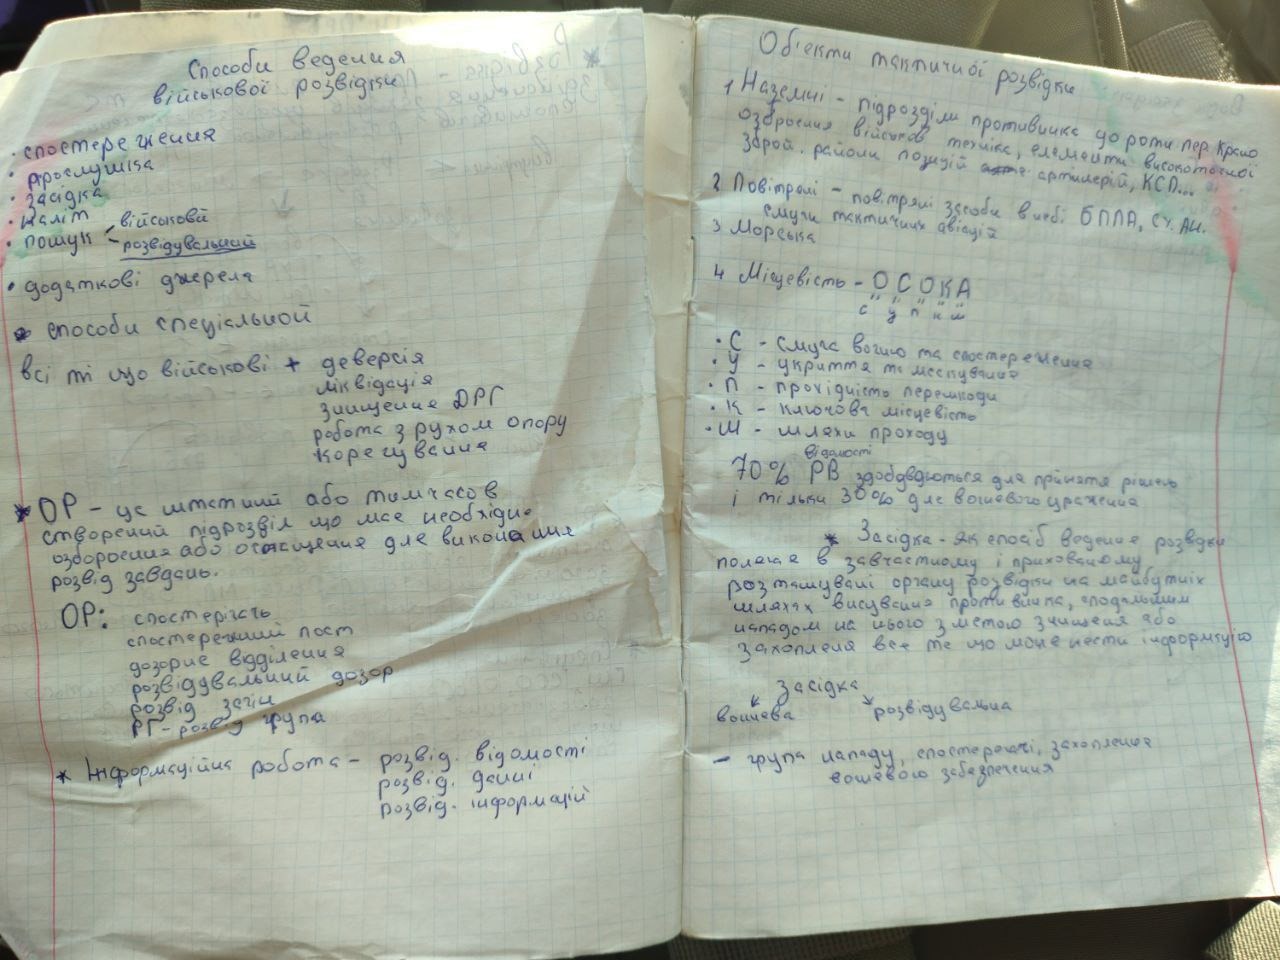 Способи ведення
військової розвідки
• спостереження
• прослушка
• засідка
• наліт
• пошук - військовий
- розвідувальний
• додаткові джерела
* способи спеціальной
всі ті що військові + деверсія
ліквідація
знищення ДРГ
робота з рухом опору
корегування
* ОР - це штатний або тимчасов
створений підрозділ що має необхідне
озбороення або оснащення для виконання
розвід завдань.
ОР: спостерігачь
спостережний пост
дозорне відділення
розвідувальний дозор
розвід загін
РГ - розвід група
* Інформаційна робота - розвід. відомості
розвід. данні
розвід. інформацій
Об'єкти тактичної розвідки
1 Наземні - підрозділи противника до роти пер. Краю
озброення військов техніка, елементи високоточної
зброй. райони позицій артилерій, КСП...
2 Повітряні - повітряні засоби в небі БПЛА,
смуги тактичних авіацій
3 Морська
4 Місцевість - ОСОКА
с у п к ш
• С - смуга вогню та спостереження
• У - укриття та маскування
• П - прохідність перешкоди
• К - ключова місцевість
• Ш - шляхи проходу
відомості
70% РВ здобуваються для прийнятя рішень
і тільки 30% для вогневого ураження
* Засідка - як спосіб ведення розвідки
полягає в завчастному і прихованому
розташувані органу розвідки на майбутніх
шляхах висування противника, сподальшим
нападом на нього з метою знищеня або
захопленя все те що може нести інформацію
засідка
вогнева розвідувальна
- група нападу, спостерігачі, захоплення
вогневого забезпечення